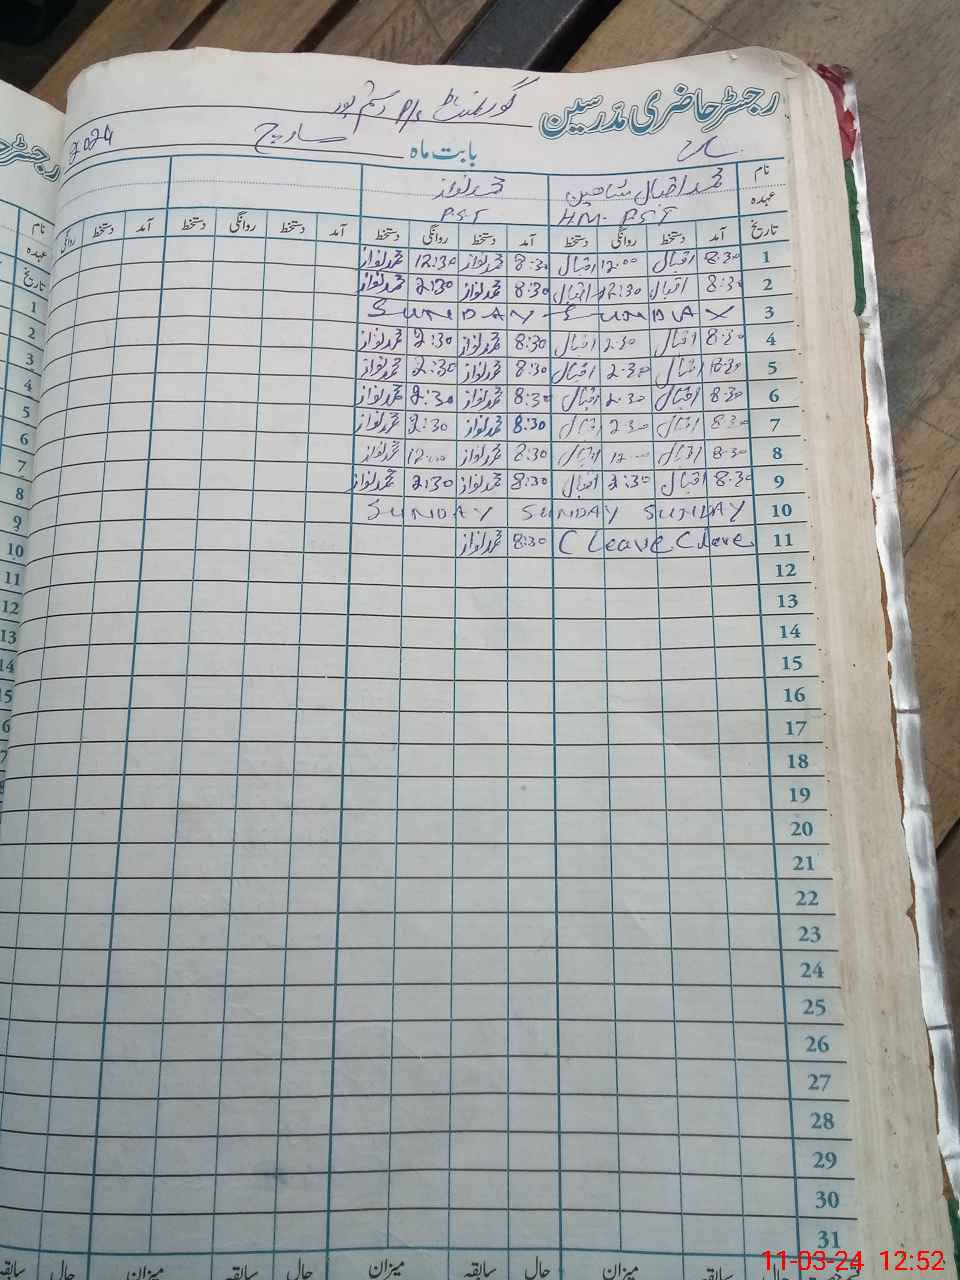 رجسٹر حاضری مدرسین گورنمنٹ P/S رستم پور
بابت ماہ مارچ 2024
نام محمد اقبال شاھین محمد نواز
عہدہ HM. PST PST
تاریخ آمد دستخط روانگی دستخط آمد دستخط روانگی دستخط آمد دستخط روانگی دستخط آمد دستخط روانگی
1 8:30 اقبال 12:00 اقبال 8:30 محمد نواز 12:30 محمد نواز
2 8:30 اقبال 2:30 اقبال 8:30 محمد نواز 2:30 محمد نواز
3 SUNDAY SUNDAY
4 8:30 اقبال 2:30 اقبال 8:30 محمد نواز 2:30 محمد نواز
5 8:30 اقبال 2:30 اقبال 8:30 محمد نواز 2:30 محمد نواز
6 8:30 اقبال 2:30 اقبال 8:30 محمد نواز 2:30 محمد نواز
7 8:30 اقبال 2:30 اقبال 8:30 محمد نواز 2:30 محمد نواز
8 8:30 اقبال 12:00 اقبال 8:30 محمد نواز 12:00 محمد نواز
9 8:30 اقبال 2:30 اقبال 8:30 محمد نواز 2:30 محمد نواز
10 SUNDAY SUNDAY SUNDAY
11 C Leave C Leave 8:30 محمد نواز
12
13
14
15
16
17
18
19
20
21
22
23
24
25
26
27
28
29
30
31
حال سابقہ میزان حال سابقہ میزان حال سابقہ میزان حال سابقہ
11-03-24 12:52